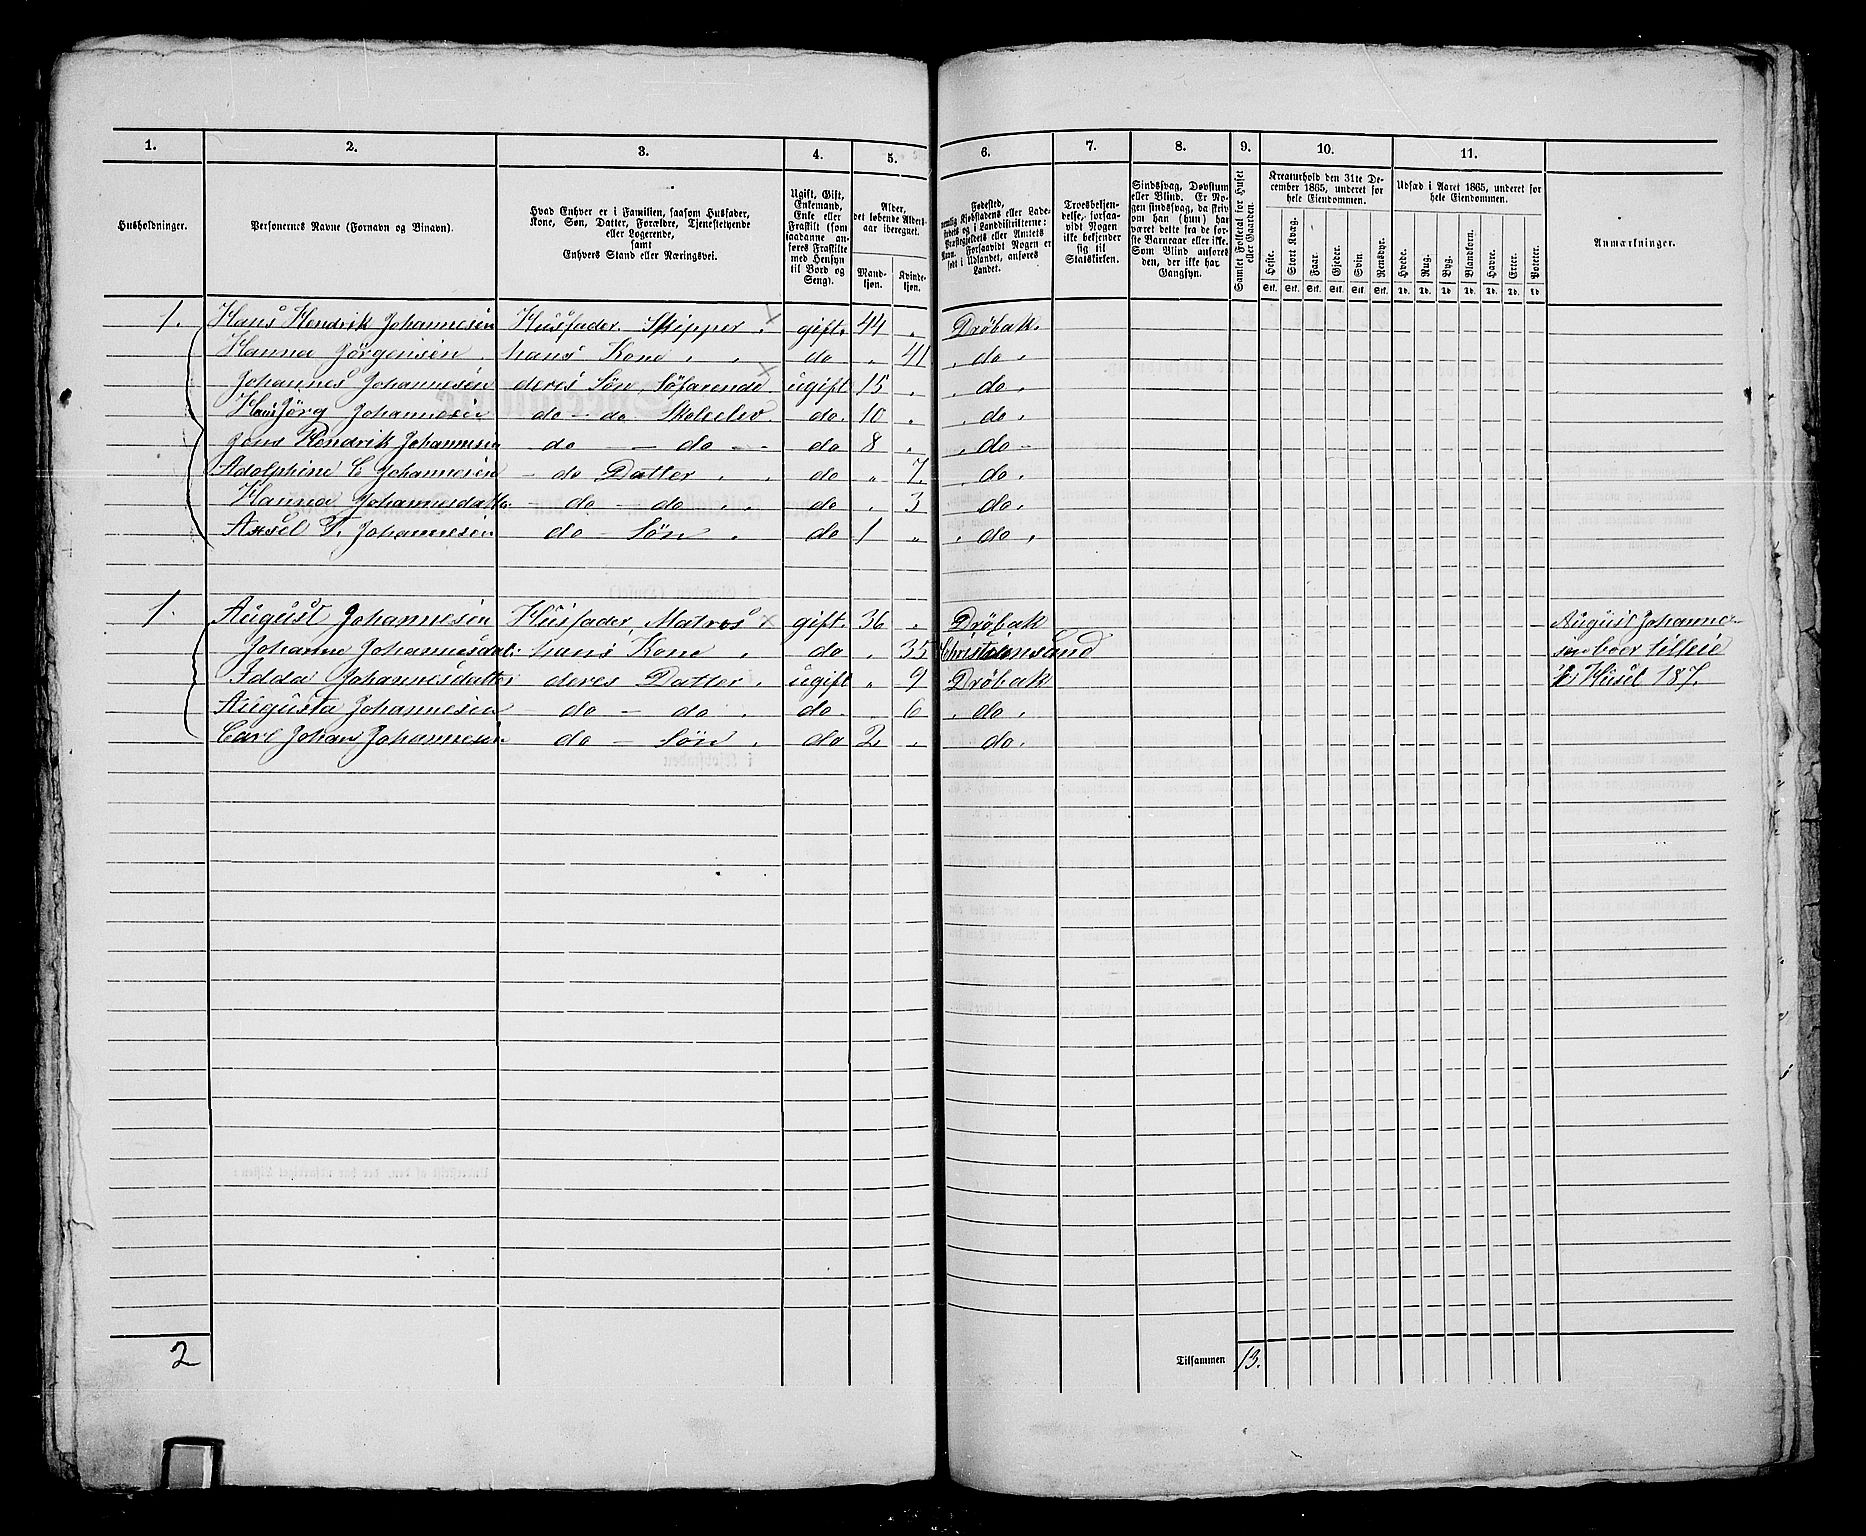 1. 2. 3. 4. 5. 6. 7. 8. 9. 10. 11.
Husholdninger.
Personernes Navne (Fornavn og Binavn).
Hvad Enhver er i Familien, saasom Husfader,
Kone, Søn, Datter, Forældre, Tjenestetyende
eller Logerende,
samt
Enhvers Stand eller Næringsvei.
Ugift, Gift,
Enkemand,
Enke eller
Fraskilt (som
saadanne an-
føres Fraskilte
med Hensyn
til Bord og
Seng).
Alder,
det løbende Alders-
aar iberegnet.
Mand-
kjøn.
Kvinde-
kjøn.
Fødested,
nemlig Kjøbstadens eller Lade-
stedets og i Landdistrikterne:
Præstegjeldets eller Amtets
Navn. Forsaavidt Nogen er
født i Udlandet, anføres
Landet.
Troesbekjen-
delse, forsaa-
vidt Nogen
ikke bekjender
sig til
Statskirken.
Sindssvag, Døvstum
eller Blind. Er No-
gen sindssvag, da skriv
om han (hun) har
været dette fra de før-
ste Barneaar eller ikke.
Som Blind anføres
den, der ikke har
Gangsyn.
Samlet Folketal for Huset
eller Gaarden.
Kreaturhold den 31te De-
cember 1865, underet for
hele Eiendommen.
Heste. Stort Kvæg. Faar. Gjeder. Svin. Rensdyr.
Stk. Stk. Stk. Stk. Stk. Stk.
Udsæd i Aaret 1865, underet for
hele Eiendommen.
Hvede. Rug. Byg. Blandkorn. Havre. Erter. Poteter.
Td. Td. Td. Td. Td. Td. Td.
Anmærkninger.
1. Hans Hendrik Johannesen Husfader. Skipper. × gift. 44 „ Drøbak.
Hanna Jörgensen. hans Kone. „ do „ 41 „ do „
Johannes Johannesen deres Søn, Søfarende × ugift 15 „ „ do „
Hans Jörg Johannesen do — do. Skoleelev do. 10 „ „ do „
Jens Hendrik Johannesen — do — — do — do 8 „ „ do —
Adolphine C Johannesen — do Datter „ do „ 7. „ do „
Hanna Johannesdatter. — do — do „ do „ 3 „ do „
Axsel T. Johannesen do — Søn „ do 1 „ „ do „
1. August Johannesen Husfader, Matros. × gift. 36 „ Drøbak
Johanne Johannesdat: hans Kone „ do „ 35 Christiansand
Idda Johannesdatter deres Datter „ ugift „ 9 Drøbak
Augusta Johannesen — do — do „ do „ 6 „ do „
Carl Johan Johannesen do — Søn „ do 2 „ do „
August Johanne-
sen boer tilleie
i Huset 187.
2
Tilsammen 13.